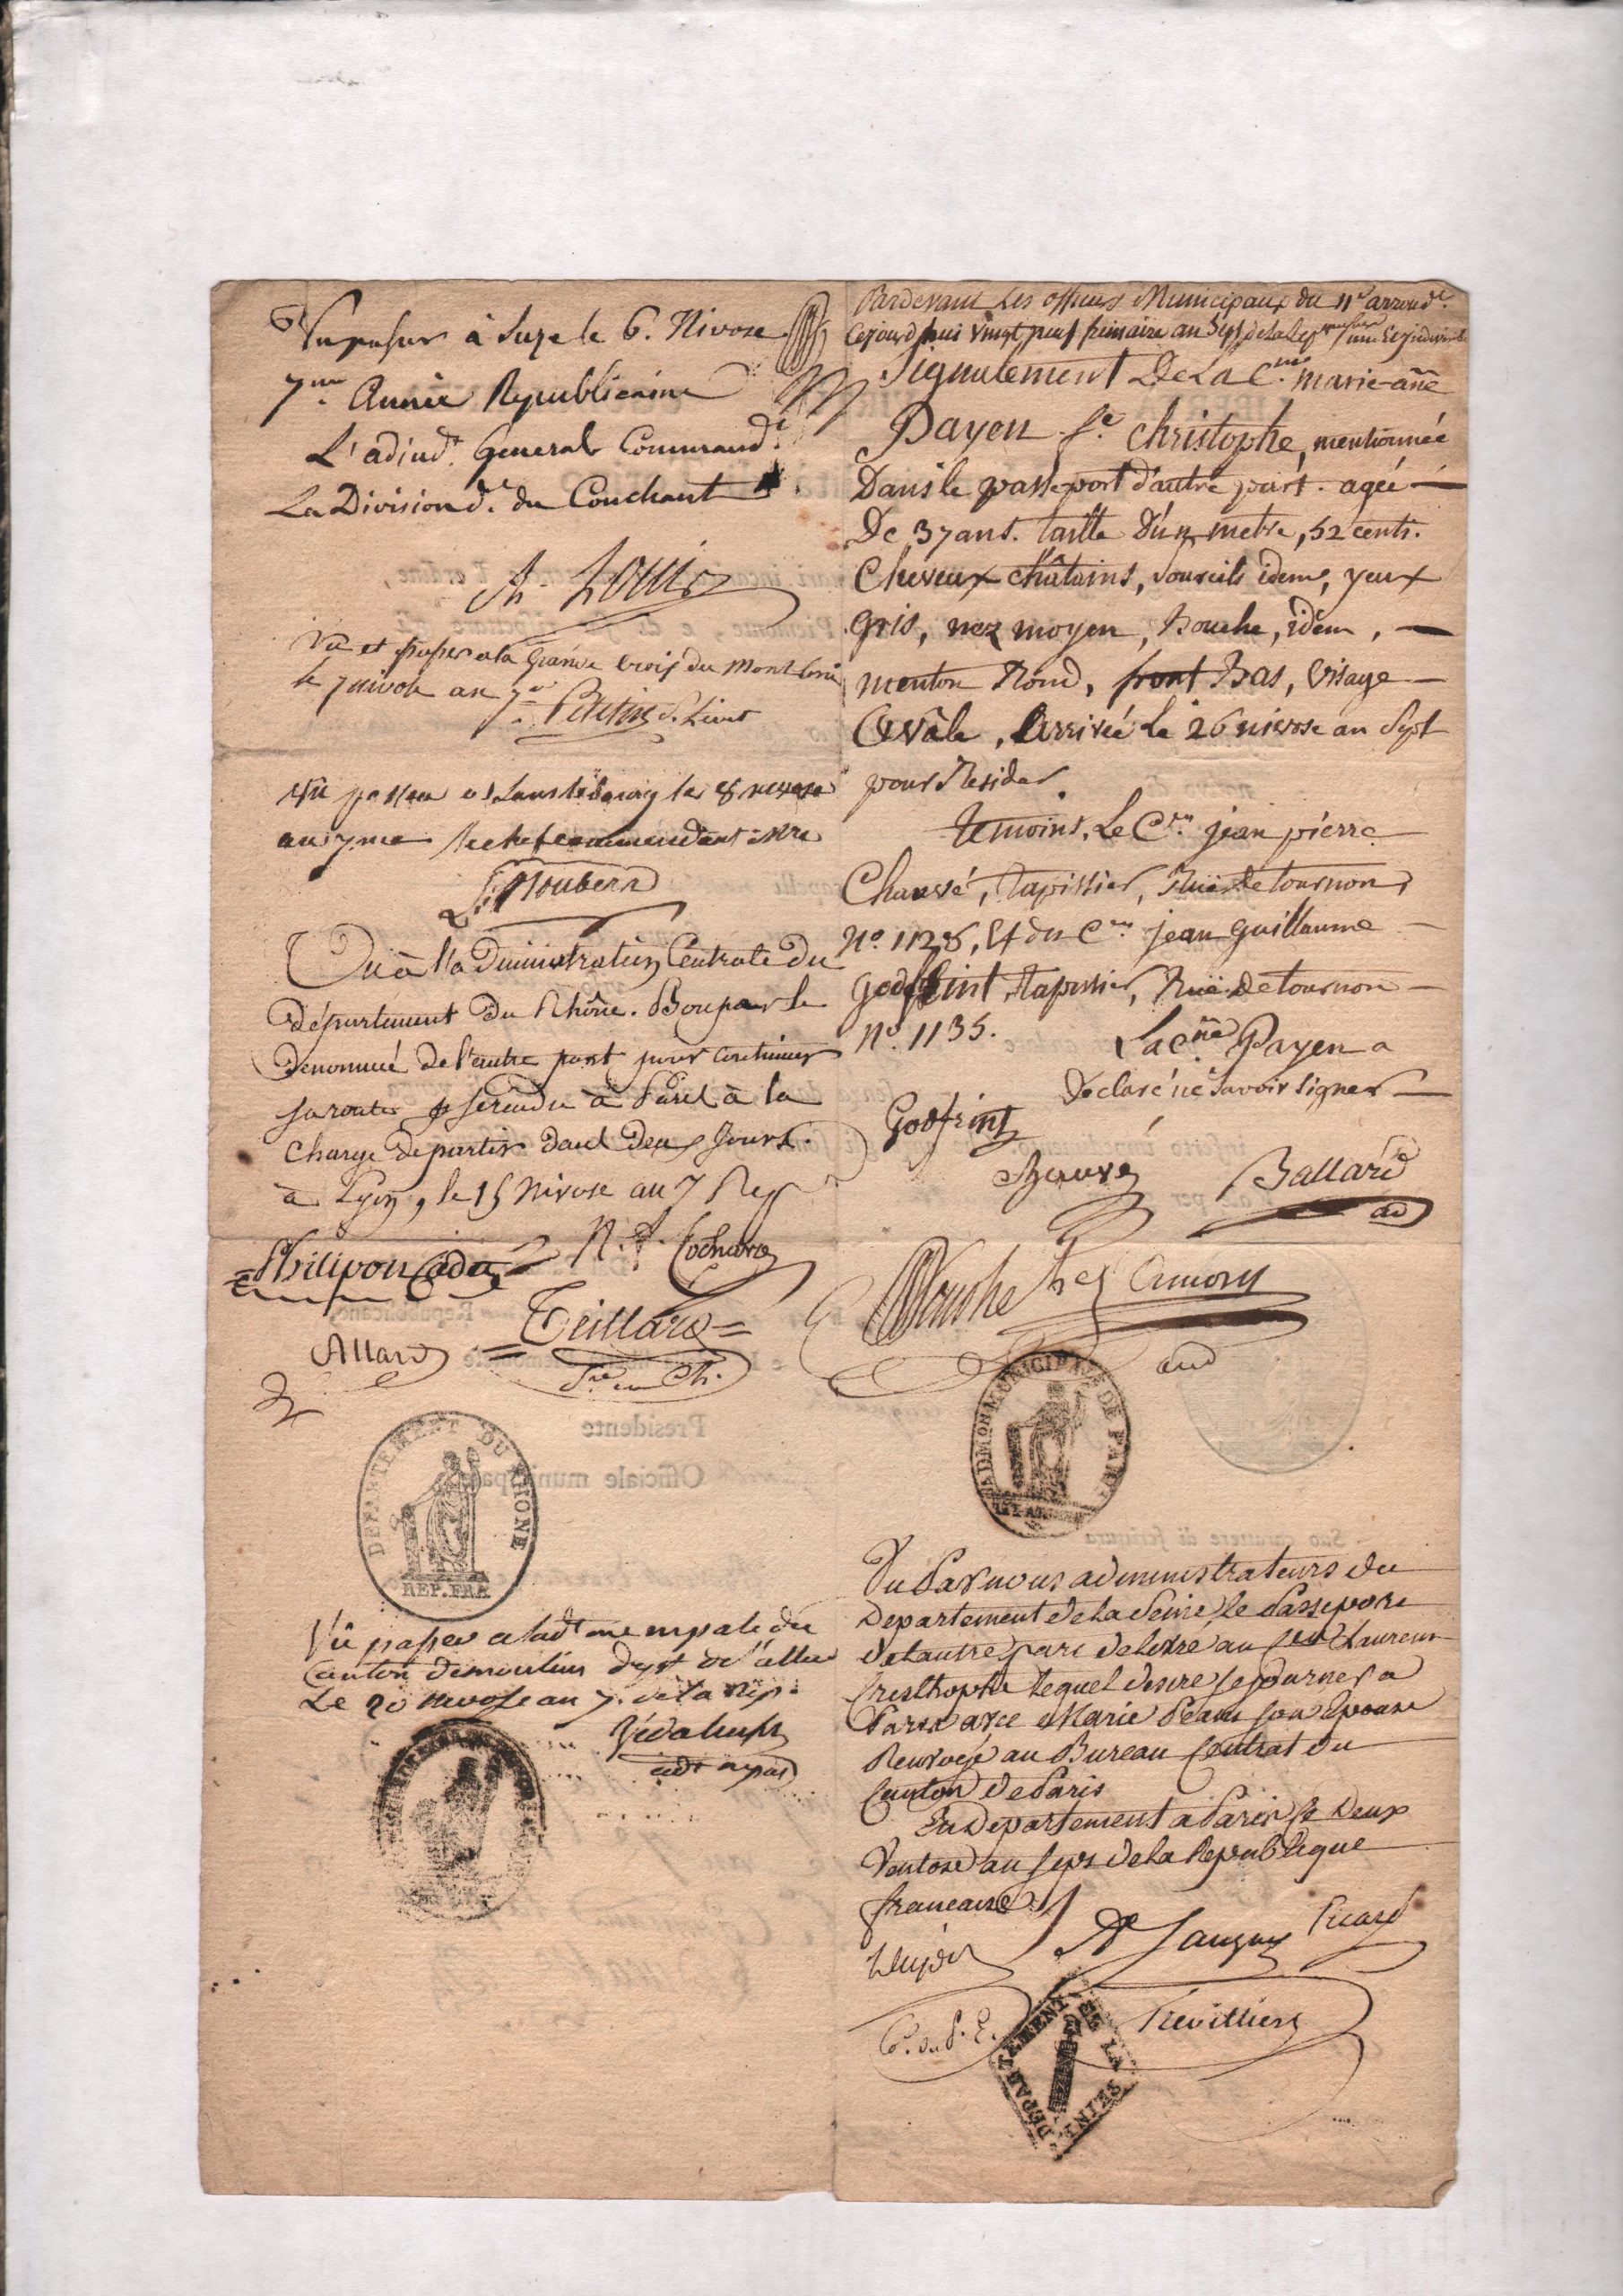 Vu passer à Suze le 6. Nivose
7me Année Républicaine
L'adjudt. General Command.t
La Division d.te du Couchant
A. Louis
Vu et passer a la grande Croix du Mont Cenis
le 7 nivose an 7me
Vu passer a Lanslebourg le 8 nivose
an 7me le chef commandant
Vu à l'administration Centrale du
département du Rhône. Bon pour le
dénommé de l'autre part pour continuer
sa route & se rendre à Paris à la
charge de partir dans deux jours.
à Lyon, le 15 Nivose an 7 Rep
Philipon Cadet N. F. Cochard
Teillard
Allard
S.re en Ch.
DEPARTEMENT DU RHONE
REP. FRA
Vû passer a
Canton de moulins dept de l'allier
Le 20 nivose an 7. de la rep.
Pardevant Les officiers Municipaux du 11e arrond.t
Cejourd'huis vingt neuf frimaire an Sept de la Rep
Signalement De La C.ne marie-añe
Payen f.e Christophe, mentionnée
Dans le passeport d'autre part. agée
De 37 ans. taille D'un metre, 52 cents.
Cheveux châtains, sourcils idem, yeux
gris, nez moyen, Bouche, idem,
menton Rond, front Bas, Visage
Ovâle, Arrivée Le 26 nivose an Sept
pour Resider.
Temoins, Le C.en jean pierre
Chauvé, tapissier, Rüe de tournon,
No. 1128, Et du C.en jean guillaume
Godfrint, tapissier, Rüe de tournon
No. 1135.
La c.ñe Payen a
Declaré ne Savoir Signer
Godfrint
Ballard
DEPAR
MUNICIPALE DE PARIS
Vu Par nous administrateurs du
Departement de la Seine le Passeport
de l'autre part delivré au Cen Laurent
Cristhophe lequel desire sejourner a
Paris avec Marie Peant son Epouse
Renvoyé au Bureau Central du
Canton de Paris
Au Departement a Paris le Deux
Ventose an Sept de la Republique
francaise
Picard
Trevilliers
DEPARTEMENT DE LA SEINE
Presidente
Officiale municipale
Suo carattere di scrittura